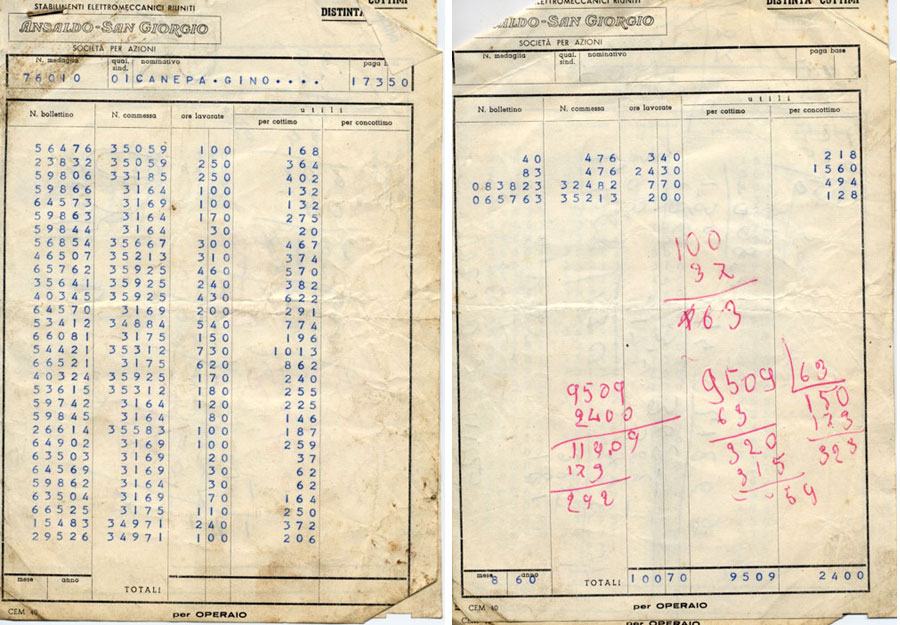 STABILIMENTI ELETTROMECCANICI RIUNITI
DISTINTA COTTIMI
ANSALDO-SAN GIORGIO
SOCIETÀ PER AZIONI
N. medaglia qual. sind. nominativo paga
76010 01 CANEPA·GINO···· 17350
utili
N. bollettino N. commessa ore lavorate per cottimo per concottimo
56476 35059 100 168
23832 35059 250 364
59806 33185 250 402
59866 3164 100 132
64573 3169 100 132
59863 3164 170 275
59844 3164 30 20
56854 35667 300 467
46507 35213 310 374
65762 35925 460 570
35641 35925 240 382
40345 35925 430 622
64570 3169 200 291
53412 34884 540 774
66081 3175 150 196
54421 35312 730 1013
66521 3175 620 862
40324 35925 170 240
53615 35312 180 255
59742 3164 120 225
59845 3164 80 146
26614 35583 100 187
64902 3169 100 259
63503 3169 20 37
64569 3169 30 62
59862 3164 30 62
63504 3169 70 164
66525 3175 110 250
15483 34971 240 372
29526 34971 100 206
mese anno TOTALI
CEM 40 per OPERAIO
ELETTROMECCANICI RIUNITI
DISTINTA COTTIMI
ALDO-SAN GIORGIO
SOCIETÀ PER AZIONI
N. medaglia qual. sind. nominativo paga base
utili
N. bollettino N. commessa ore lavorate per cottimo per concottimo
40 476 340 218
83 476 2430 1560
083823 32482 770 494
065763 35213 200 128
100
37
63
9509
2400
11909
179
292
9509 63
63 150
320 173
315 323
59
mese anno
8 60 TOTALI 10070 9509 2400
CEM 40 per OPERAIO
per OPERAIO